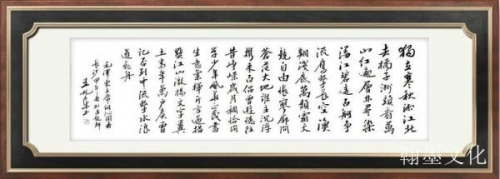 獨立寒秋湘江北
去橘子洲頭看萬
山紅遍層林盡染
漫江碧透百舸爭
流鷹擊長空魚
翔淺底萬類霜天
競自由悵寥廓問
蒼茫大地誰主沉浮
攜來百侶曾遊憶往
昔崢嶸歲月稠恰同
學少年風華正茂書
生意氣揮斥方遒指
點江山激揚文字糞
土當年萬戶侯曾
記否到中流擊水浪
遏飛舟
毛澤東主席詞沁園春
長沙
翰墨文化